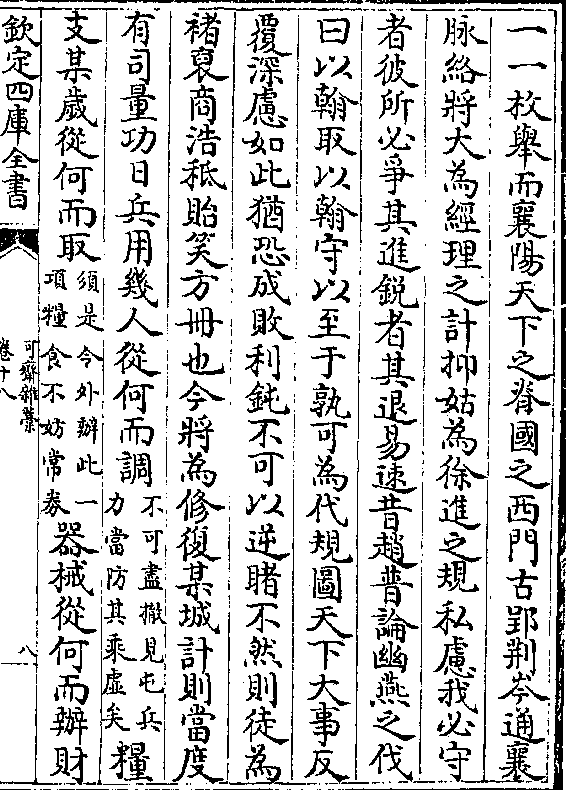 一一枚舉而襄陽天下之脊國之西門古郢荆岑通襄
脉絡將大為經理之計抑姑為徐進之規私慮我必守
者彼所必爭其進銳者其退易速昔趙普論幽燕之代
曰以翰取以翰守以至于孰可為代規圖天下大事反
覆深慮如此猶恐成敗利鈍不可以逆睹不然則徒為
褚裒商浩秪貽笑方冊也今將為修復某城計則當度
有司量功日兵用幾人從何而調不可盡撤見屯兵力當防其乘虛矣糧
支某歲從何而取須是今外辦此一項糧食不妨常劵器械從何而辦財
欽定四庫全書
可齋雜藁
卷十八
八